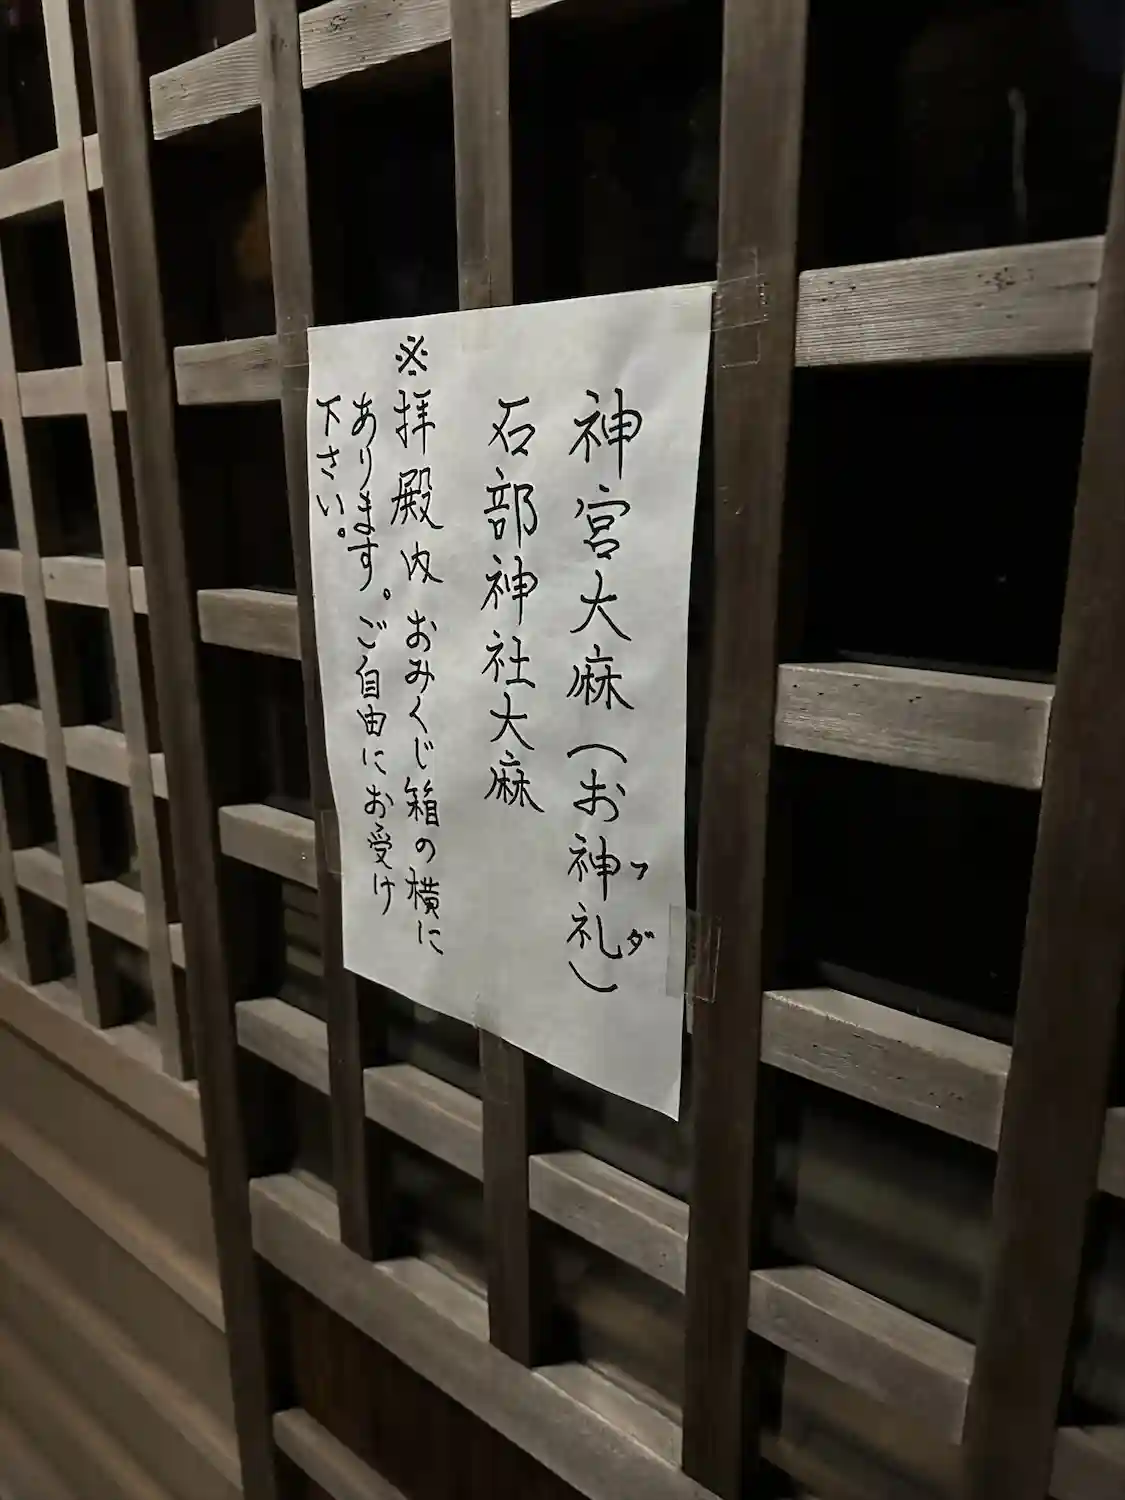 神宮大麻(お神札)
フダ
石部神社大麻
※拝殿内おみくじ箱の横に
あります。ご自由にお受け
下さい。